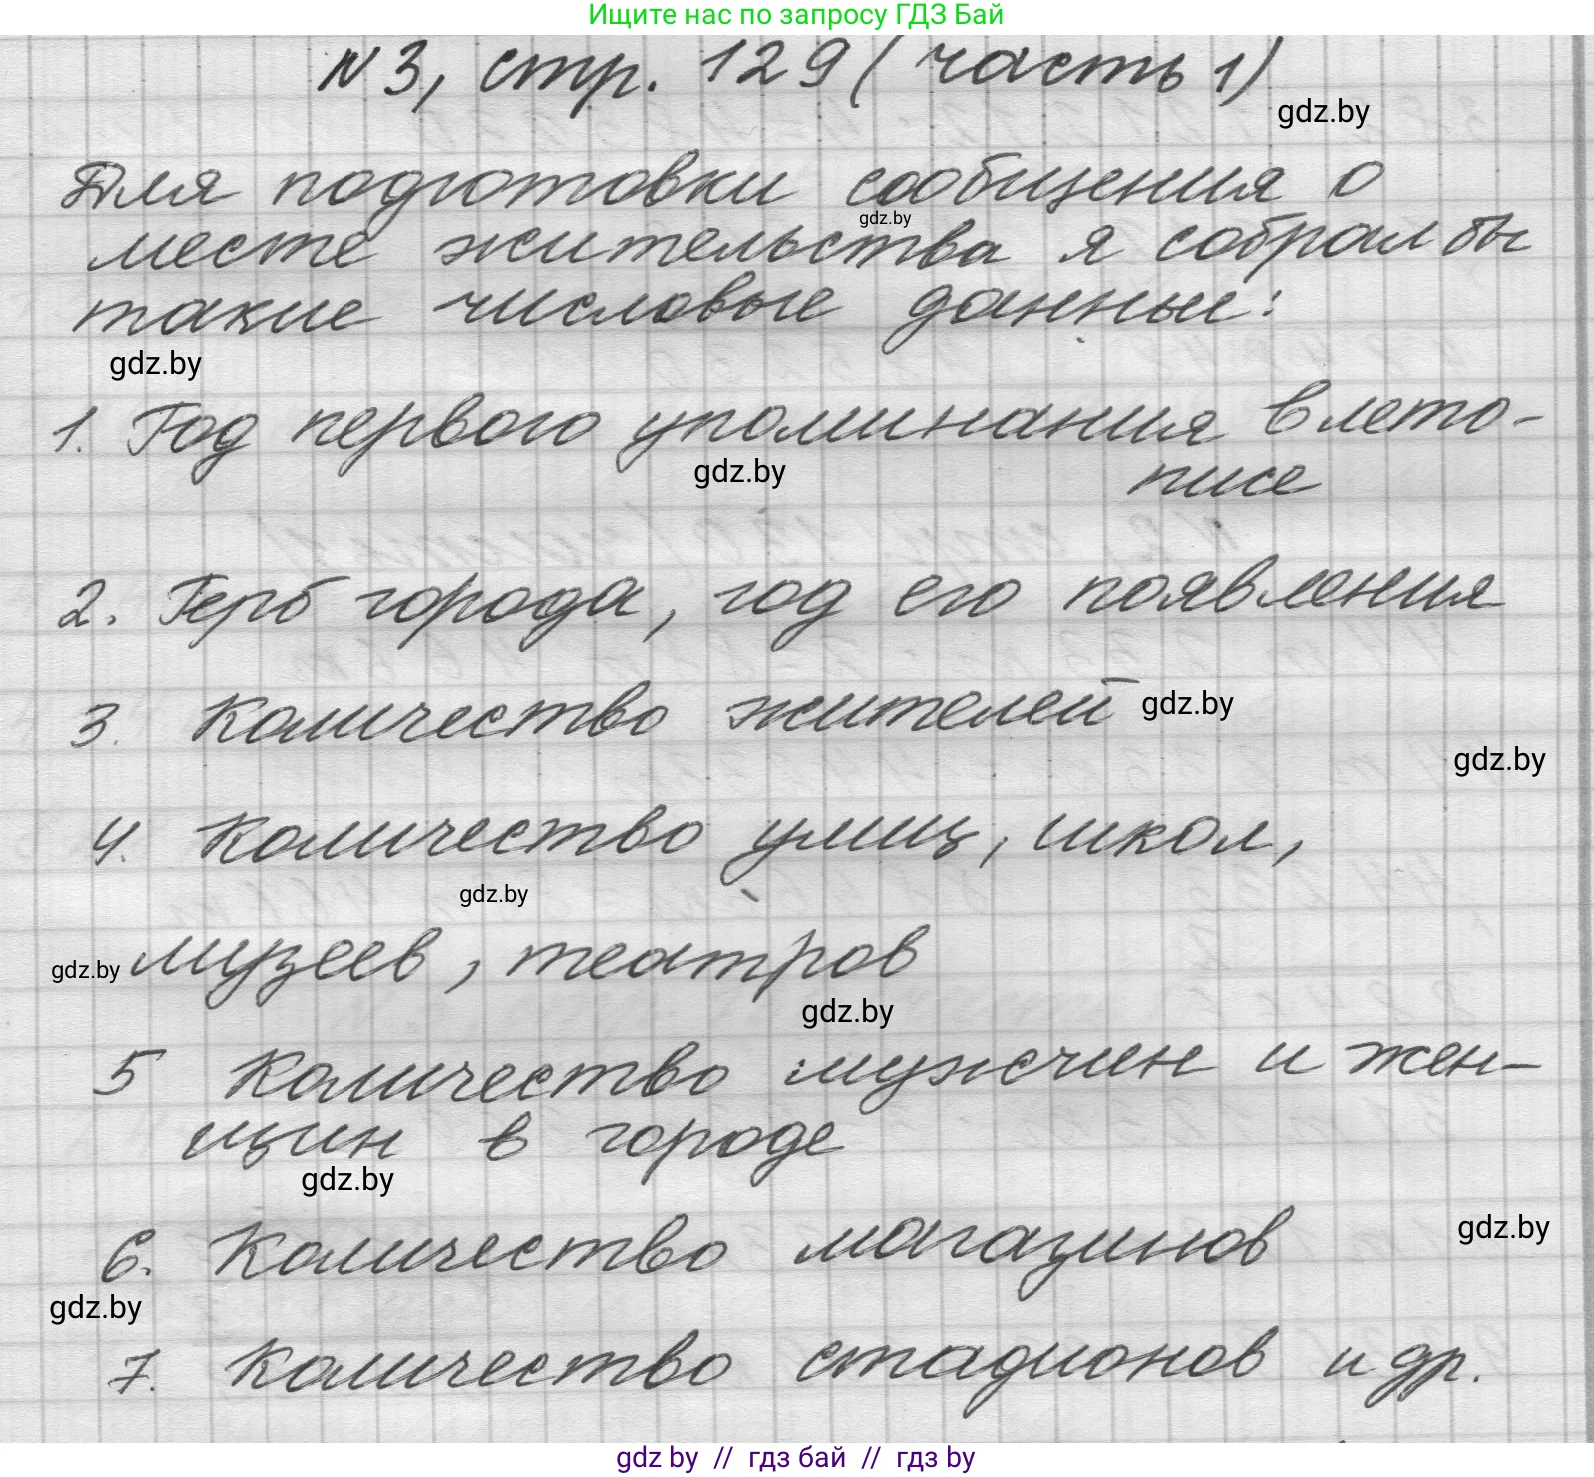 Ищите нас по запросу ГДЗ Бай
N3, стр. 129 (часть 1)
gdz.by
Для подготовки сообщения о
gdz.by
месте жительства я собрал бы
такие числовые данные:
gdz.by
1. Год первого упоминания в лето-
gdz.by
писе
2. Герб города, год его появления
3. Количество жителей
gdz.by
gdz.by
4. Количество улиц, школ,
gdz.by
gdz.by
музеев, театров
gdz.by
5 Количество мужчин и жен-
щин в городе
gdz.by
6. Количество магазинов
gdz.by
gdz.by
7. Количество стадионов и др.
gdz by // гдз бай // гдз by